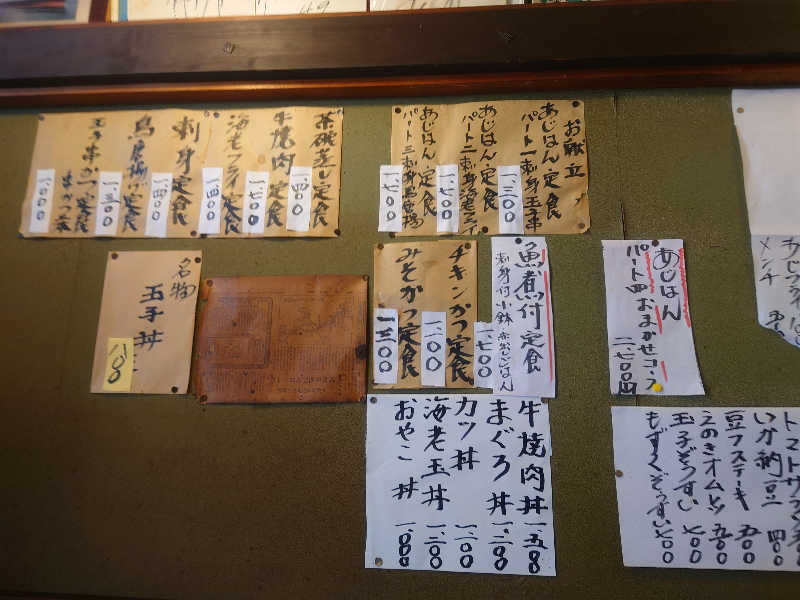 お献立
あじはん定食
パート一刺身玉子丼
一、三〇〇
あじはん定食
パート二刺身海老フライ
一、七〇〇
あじはん定食
一、七〇〇
茶碗蒸し定食
一、四〇〇
牛焼肉定食
一、七〇〇
海老フライ定食
一、四〇〇
刺身定食
一、四〇〇
鳥唐揚げ定食
一、三〇〇
玉子串かつ定食
串かつ二本
一、〇〇〇
あじはん
パート四おまかせコース
二、七〇〇円
魚煮付定食
刺身付小鉢赤出しごはん
一、七〇〇
チキンかつ定食
一、一〇〇
みそかつ定食
一、三〇〇
名物
玉子丼
八〇〇
牛焼肉丼 一、五〇
まぐろ丼 一、三〇〇
カツ丼 一、一〇〇
海老玉丼 一、三〇〇
おやこ丼 一、〇〇〇
メンチ
いか納豆 四〇〇
豆フステーキ 五〇〇
えのきオムレツ 五〇〇
玉子ぞうすい 七〇〇
もずくぞうすい 七〇〇